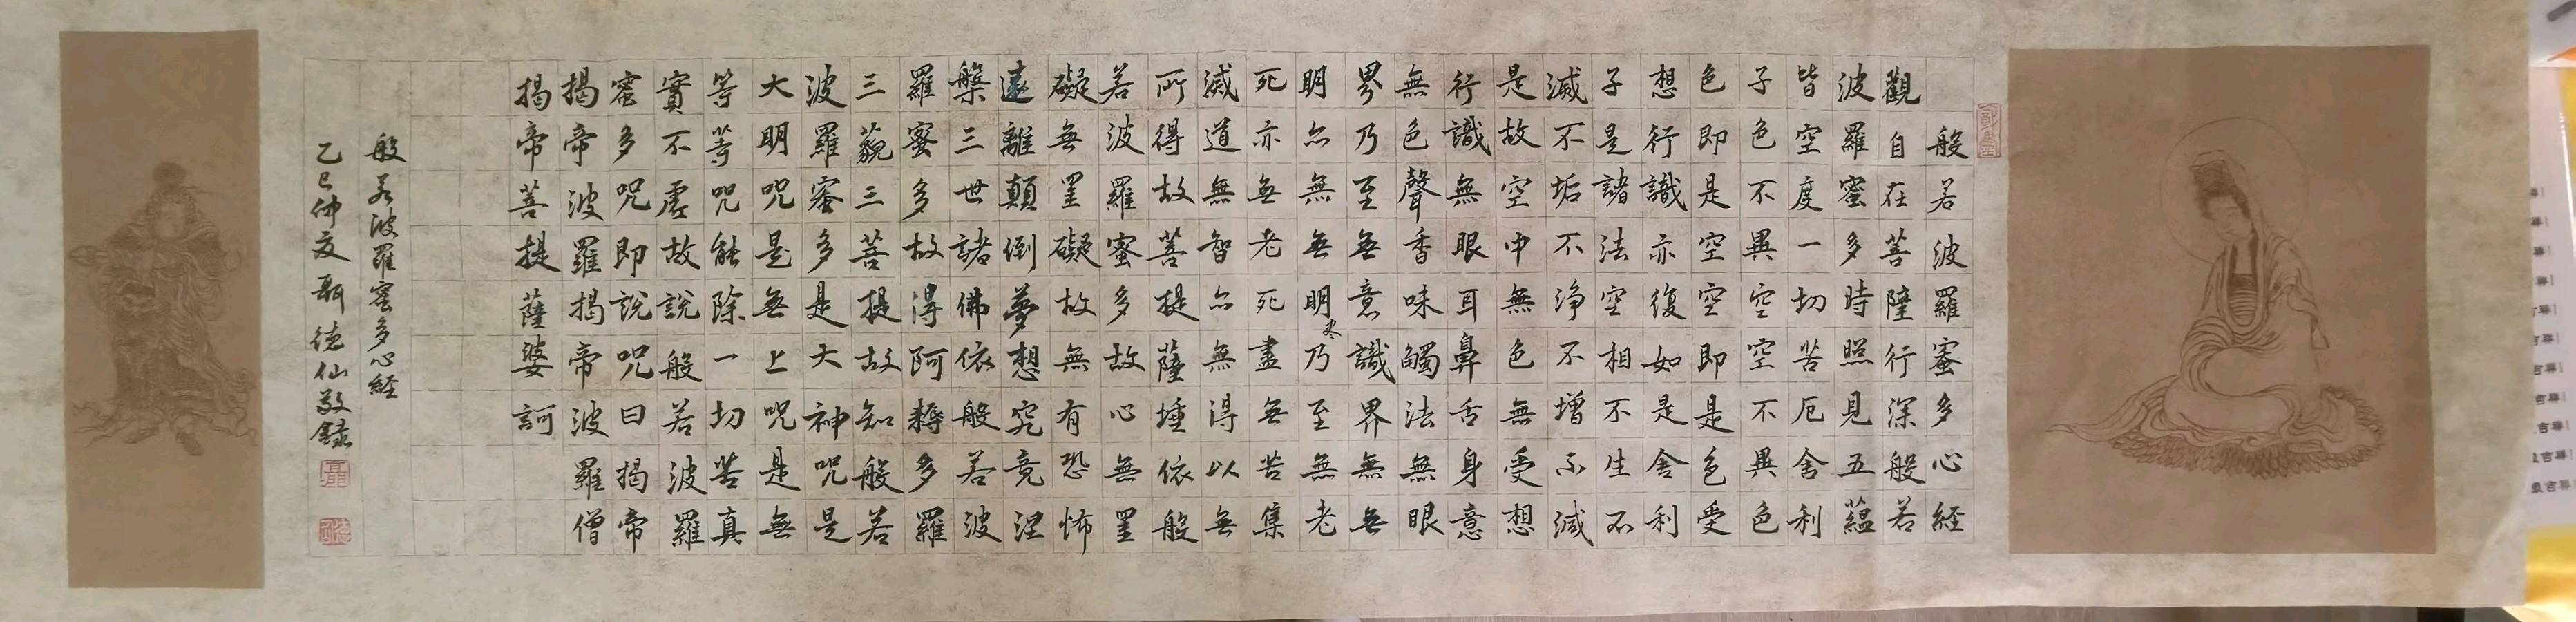 般若波羅蜜多心経
觀自在菩薩行深般若
波羅蜜多時照見五蘊
皆空度一切苦厄舍利
子色不異空空不異色
色即是空空即是色受
想行識亦復如是舍利
子是諸法空相不生不
滅不垢不淨不增不減
是故空中無色無受想
行識無眼耳鼻舌身意
無色聲香味觸法無眼
界乃至無意識界無無
明亦無無明尽乃至無老
死亦無老死盡無苦集
滅道無智亦無得以無
所得故菩提薩埵依般
若波羅蜜多故心無罣
礙無罣礙故無有恐怖
遠離顛倒夢想究竟涅
槃三世諸佛依般若波
羅蜜多故得阿耨多羅
三藐三菩提故知般若
波羅蜜多是大神咒是
大明咒是無上咒是無
等等咒能除一切苦真
實不虛故說般若波羅
蜜多咒即說咒曰揭帝
揭帝波羅揭帝波羅僧
揭帝菩提薩婆訶
般若波羅蜜多心經
乙巳仲夏聶德仙敬錄